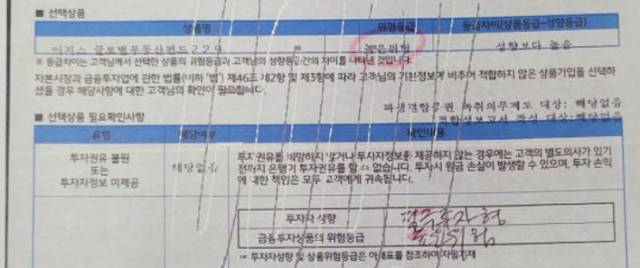 ■ 선택상품
상품명 위험등급 등급차이(상품등급-성향등급)
이지스 글로벌부동산펀드229 높은위험 성향보다 높음
※ 등급차이는 고객님께서 선택한 상품의 위험등급과 고객님의 성향등급간의 차이를 나타낸 것입니다.
자본시장과 금융투자업에 관한 법률(이하 "법") 제46조 제2항 및 제3항에 따라 고객님의 기본정보에 비추어 적합하지 않은 상품가입을 선택하
셨을 경우 해당사항에 대한 고객님의 확인이 필요합니다.
파생결합증권 녹취의무제도 대상: 해당없음
적합성보고서 작성 대상: 해당없음
■ 선택상품 필요확인사항
유형 해당여부 확인내용
투자권유 불원 또는 투자자정보 미제공
해당없음
투자권유를 희망하지 않거나 투자자정보를 제공하지 않는 경우에는 고객의 별도의사가 있기
전까지 은행기 투자권유를 할 수 없습니다. 투자시 원금 손실이 발생할 수 있으며, 투자 손익
에 대한 책임은 모두 고객에게 귀속됩니다.
투자자 성향 투자형
금융투자상품의 위험등급 높은위험
☞ 투자자성향 및 상품위험등급은 아래표를 참조하여 자필기재